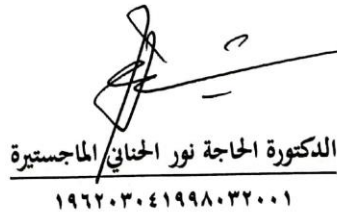 الدكتورة الحاجة نور الحناني الماجستيرة
١٩٦٢٠٣٠٤١٩٩٨٠٣٢٠٠١